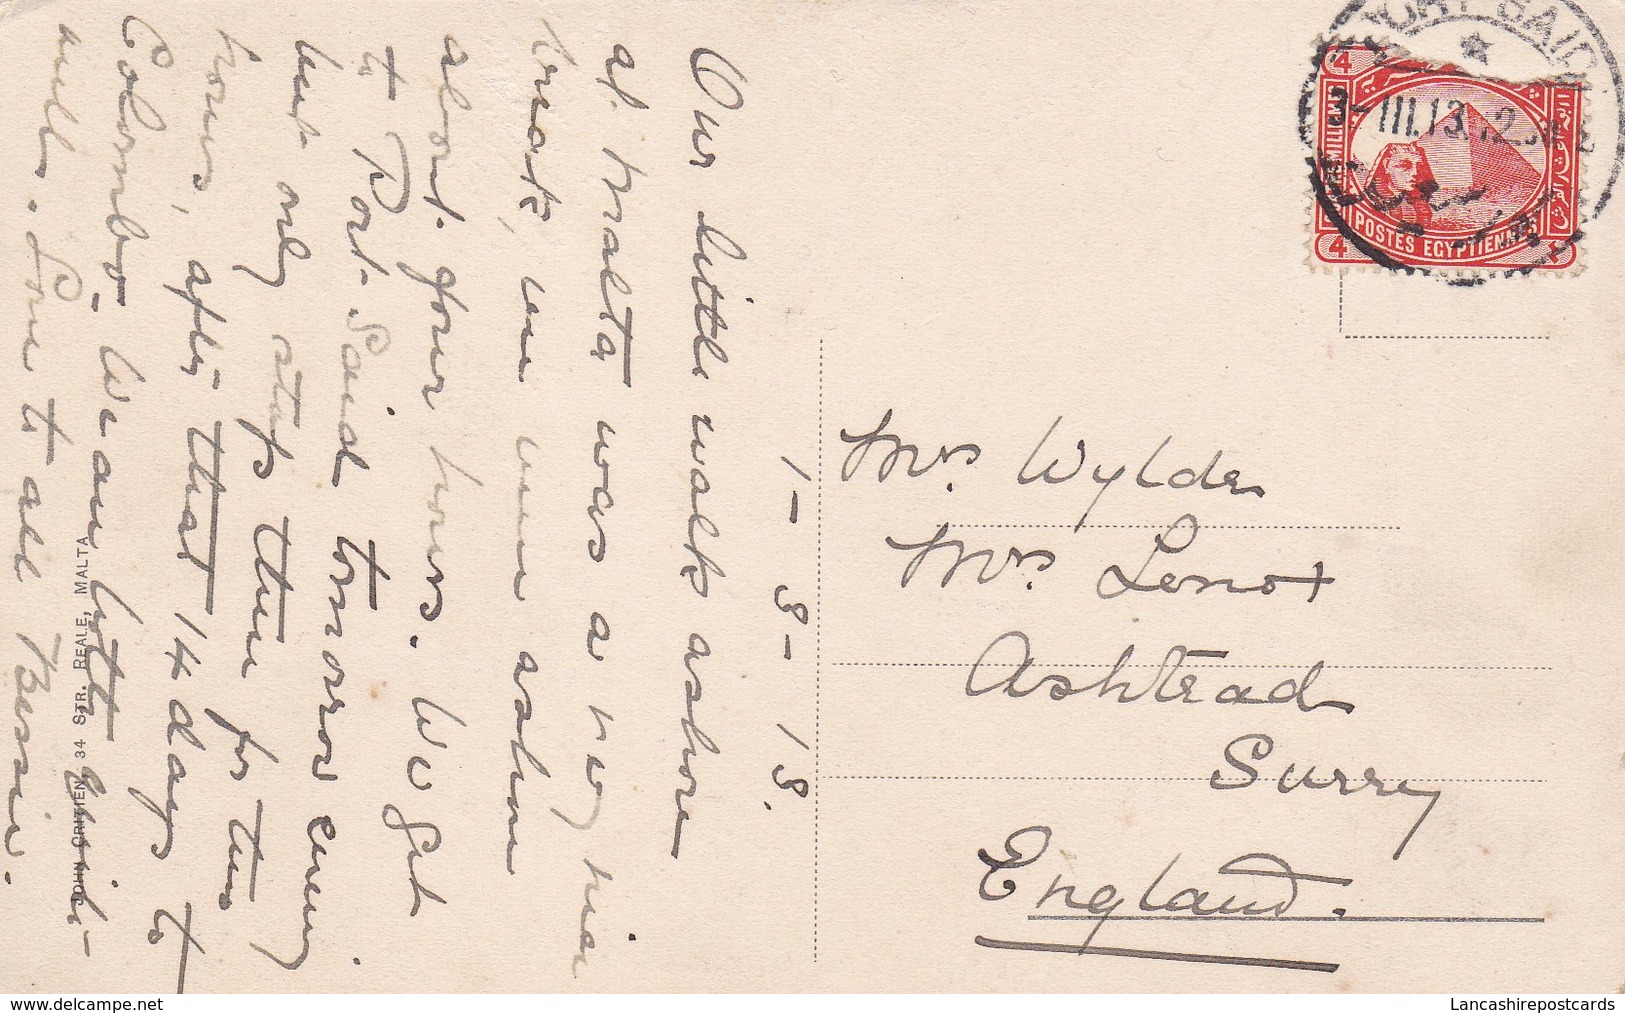 1-3-13.
Our little walk ashore
at Malta was a very nice
break, we were ashore
about four hours. We get
to Port-Said tomorrow evening
but only stop there for two
hours, after that 14 days to
Colombo. We are both quite
well. Love to all Bessie.
JOHN CRITIEN, 34 STR. REALE, MALTA
PORT SAID
3-III.13
4
4
4
MILLIEMES
POSTES EGYPTIENNES
Mrs Wylde
Mrs Lenox
Ashtead
Surry
England.
www.delcampe.net
Lancashirepostcards